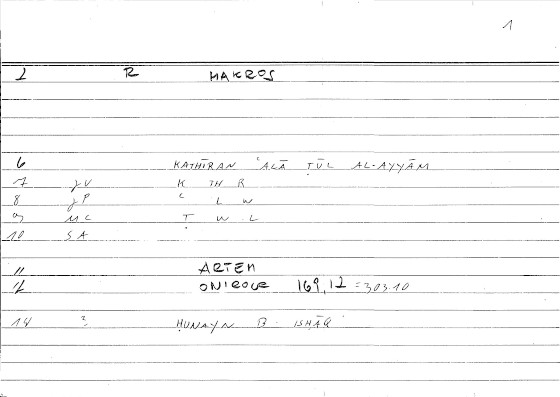 1
2 R MAKROS
6 KATHĪRAN ʿALĀ ṬŪL AL-AYYĀM
7 gV K TH R
8 gP ʿ L W
9 MC Ṭ W L
10 SA
11 ARTEM
12 ONIROCR 169,12 = 303.10
14 ḤUNAYN B. ISḤĀQ